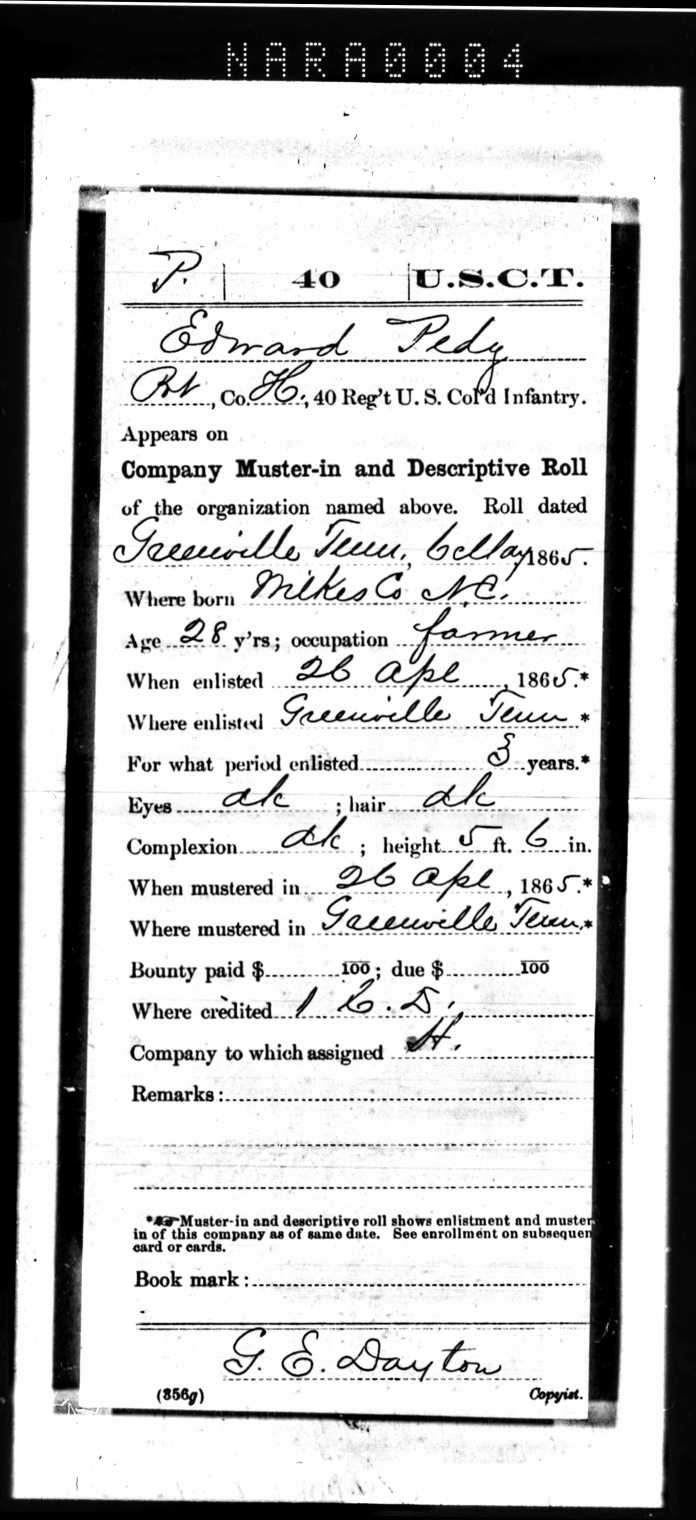 NARA0004
P. | 40 | U.S.C.T.
Edward Pedy
Pvt, Co. H., 40 Reg't U. S. Col'd Infantry.
Appears on
Company Muster-in and Descriptive Roll
of the organization named above. Roll dated
Greenville Tenn., 6 May, 1865.
Where born Wilkes Co N.C.
Age 28 y'rs; occupation farmer
When enlisted 26 Apl, 1865.*
Where enlisted Greenville Tenn *
For what period enlisted 3 years.*
Eyes dk ; hair dk
Complexion dk ; height 5 ft. 6 in.
When mustered in 26 Apl, 1865.*
Where mustered in Greenville Tenn.*
Bounty paid $ 100 ; due $ 100
Where credited 1 C. D.
Company to which assigned H.
Remarks:
*☞Muster-in and descriptive roll shows enlistment and muster
in of this company as of same date. See enrollment on subsequen
card or cards.
Book mark:
G. E. Dayton
(356g) Copyist.